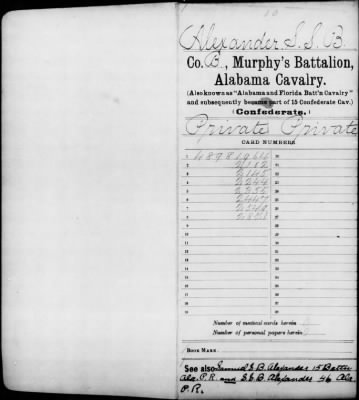 10
Alexander, S. S. B.
Co. B., Murphy's Battalion,
Alabama Cavalry.
(Also known as "Alabama and Florida Batt'n Cavalry"
and subsequently became part of 15 Confederate Cav.)
(Confederate.)
Private Private
CARD NUMBERS
1 48981966 20
2 2112 21
3 2145 22
4 2244 23
5 2355 24
6 2467 25
7 26
8 27
9 28
10 29
11 30
12 31
Number of medical cards herein
Number of personal papers herein
BOOK MARK:
See also Samuel S. B. Alexander 15 Battn
Ala. P. R. and S. S. B. Alexander 46 Ala
P. R.